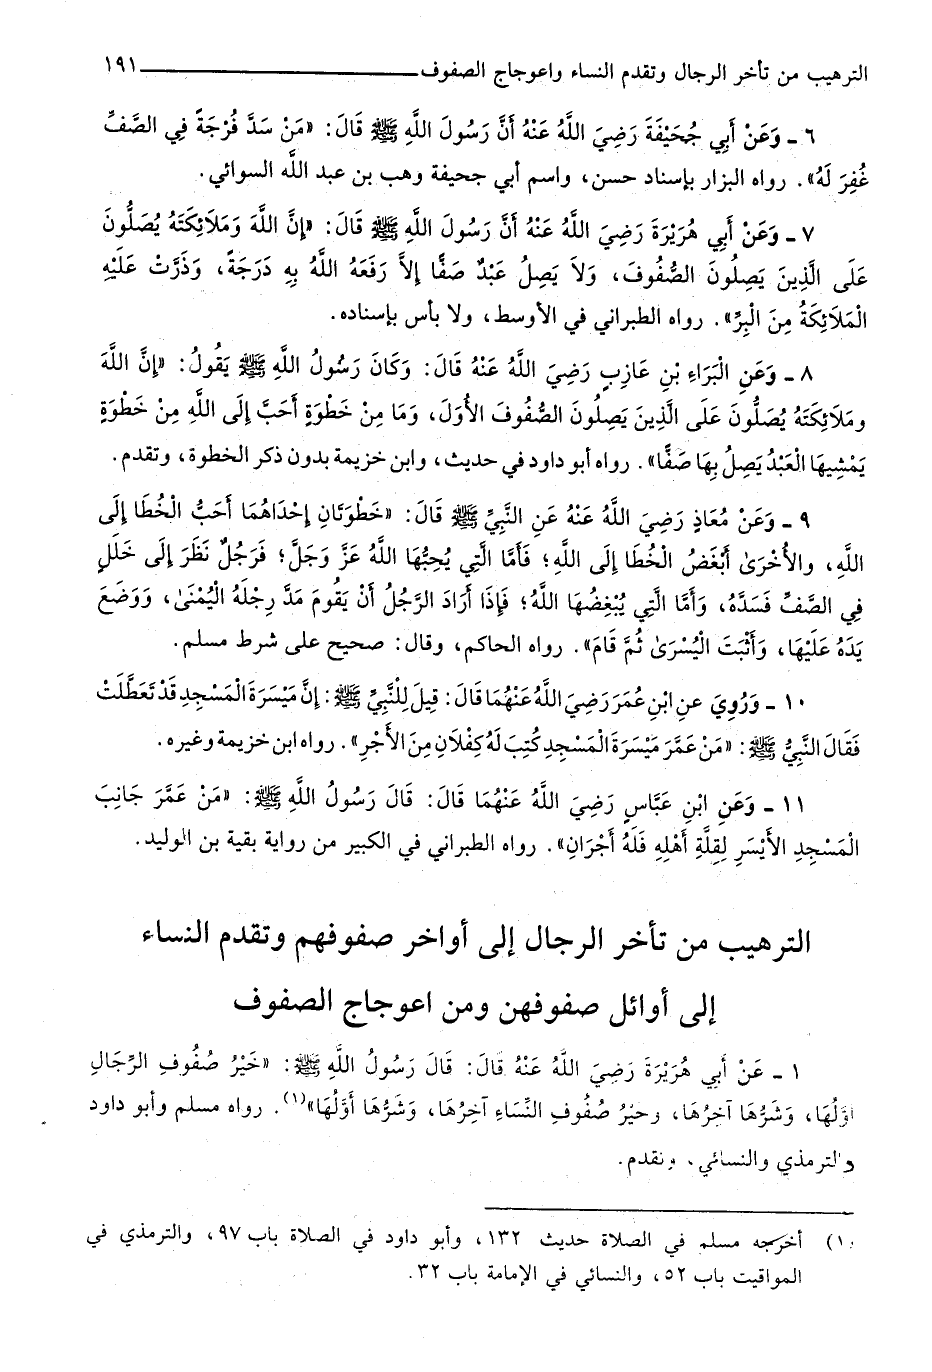 الترهيب من تأخر الرجال وتقدم النساء واعوجاج الصفوف ١٩١
٦ ـ وَعَنْ أَبِي جُحَيْفَةَ رَضِيَ اللَّهُ عَنْهُ أَنَّ رَسُولَ اللَّهِ ﷺ قَالَ: «مَنْ سَدَّ فُرْجَةً فِي الصَّفِّ
غُفِرَ لَهُ». رواه البزار بإسناد حسن، واسم أبي جحيفة وهب بن عبد الله السوائي.
٧ ـ وَعَنْ أَبِي هُرَيْرَةَ رَضِيَ اللَّهُ عَنْهُ أَنَّ رَسُولَ اللَّهِ ﷺ قَالَ: «إِنَّ اللَّهَ وَمَلَائِكَتَهُ يُصَلُّونَ
عَلَى الَّذِينَ يَصِلُونَ الصُّفُوفَ، وَلاَ يَصِلُ عَبْدٌ صَفًّا إِلاَّ رَفَعَهُ اللَّهُ بِهِ دَرَجَةً، وَذَرَّتْ عَلَيْهِ
الْمَلَائِكَةُ مِنَ الْبِرِّ». رواه الطبراني في الأوسط، ولا بأس بإسناده.
٨ ـ وَعَنِ الْبَرَاءِ بْنِ عَازِبٍ رَضِيَ اللَّهُ عَنْهُ قَالَ: وَكَانَ رَسُولُ اللَّهِ ﷺ يَقُولُ: «إِنَّ اللَّهَ
ومَلَائِكَتَهُ يُصَلُّونَ عَلَى الَّذِينَ يَصِلُونَ الصُّفُوفَ الأُوَلَ، وَمَا مِنْ خَطْوَةٍ أَحَبَّ إِلَى اللَّهِ مِنْ خَطْوَةٍ
يَمْشِيهَا الْعَبْدُ يَصِلُ بِهَا صَفًّا». رواه أبو داود في حديث، وابن خزيمة بدون ذكر الخطوة، وتقدم.
٩ ـ وَعَنْ مُعَاذٍ رَضِيَ اللَّهُ عَنْهُ عَنِ النَّبِيِّ ﷺ قَالَ: «خَطْوَتَانِ إِحْدَاهُمَا أَحَبُّ الْخُطَا إِلَى
اللَّهِ، والأُخْرَىٰ أَبْغَضُ الْخُطَا إِلَى اللَّهِ؛ فَأَمَّا الَّتِي يُحِبُّهَا اللَّهُ عَزَّ وَجَلَّ؛ فَرَجُلٌ نَظَرَ إِلَى خَلَلٍ
فِي الصَّفِّ فَسَدَّهُ، وَأَمَّا الَّتِي يُبْغِضُهَا اللَّهُ؛ فَإِذَا أَرَادَ الرَّجُلُ أَنْ يَقُومَ مَدَّ رِجْلَهُ الْيُمْنَىٰ، وَوَضَعَ
يَدَهُ عَلَيْهَا، وَأَثْبَتَ الْيُسْرَىٰ ثُمَّ قَامَ». رواه الحاكم، وقال: صحيح على شرط مسلم.
١٠ ـ وَرُوِيَ عنِ ابْنِ عُمَرَ رَضِيَ اللَّهُ عَنْهُمَا قَالَ: قِيلَ لِلنَّبِيِّ ﷺ: إِنَّ مَيْسَرَةَ الْمَسْجِدِ قَدْ تَعَطَّلَتْ
فَقَالَ النَّبِيُّ ﷺ: «مَنْ عَمَّرَ مَيْسَرَةَ الْمَسْجِدِ كُتِبَ لَهُ كِفْلَانِ مِنَ الأَجْرِ». رواه ابن خزيمة وغيره.
١١ ـ وَعَنِ ابْنِ عَبَّاسٍ رَضِيَ اللَّهُ عَنْهُمَا قَالَ: قَالَ رَسُولُ اللَّهِ ﷺ: «مَنْ عَمَّرَ جَانِبَ
الْمَسْجِدِ الأَيْسَرِ لِقِلَّةِ أَهْلِهِ فَلَهُ أَجْرَانِ». رواه الطبراني في الكبير من رواية بقية بن الوليد.
الترهيب من تأخر الرجال إلى أواخر صفوفهم وتقدم النساء
إلى أوائل صفوفهن ومن اعوجاج الصفوف
١ ـ عَنْ أَبِي هُرَيْرَةَ رَضِيَ اللَّهُ عَنْهُ قَالَ: قَالَ رَسُولُ اللَّهِ ﷺ: «خَيْرُ صُفُوفِ الرِّجَالِ
أَوَّلُهَا، وَشَرُّهَا آخِرُهَا، وخَيْرُ صُفُوفِ النِّسَاءِ آخِرُهَا، وَشَرُّهَا أَوَّلُهَا»(١). رواه مسلم وأبو داود
والترمذي والنسائي، وتقدم.
(١) أخرجه مسلم في الصلاة حديث ١٣٢، وأبو داود في الصلاة باب ٩٧، والترمذي في
المواقيت باب ٥٢، والنسائي في الإمامة باب ٣٢.